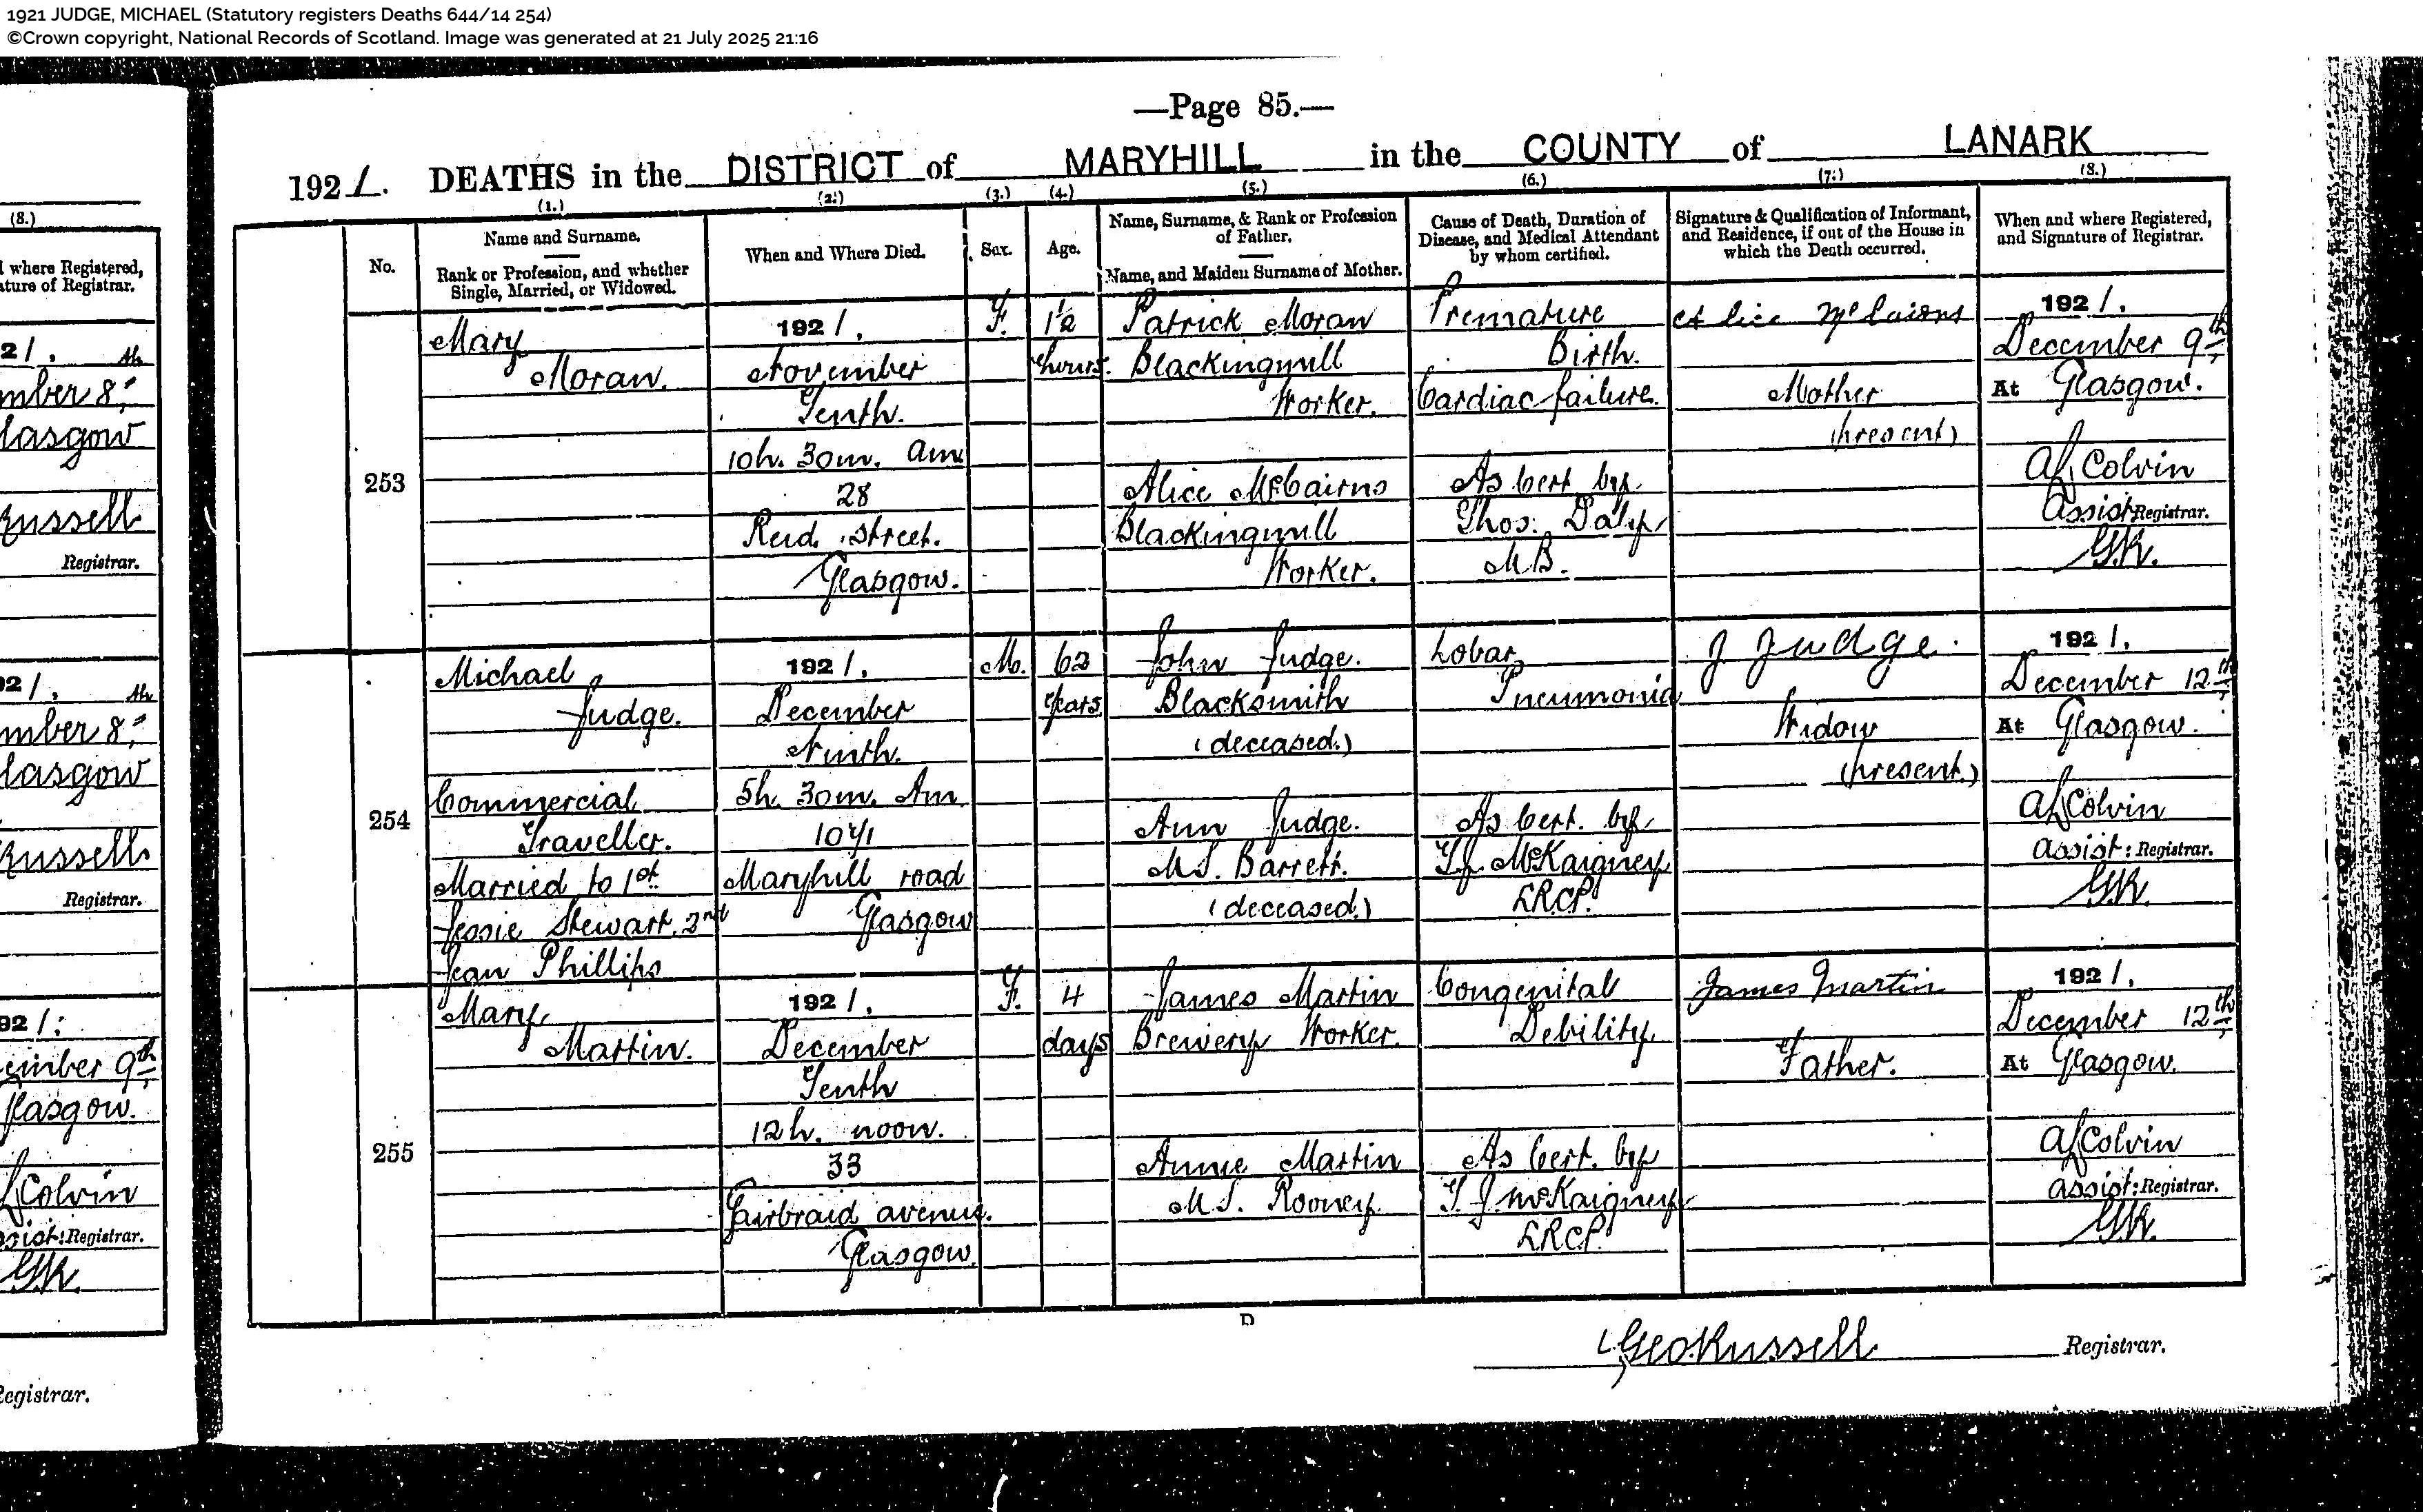 1921 JUDGE, MICHAEL (Statutory registers Deaths 644/14 254)
©Crown copyright, National Records of Scotland. Image was generated at 21 July 2025 21:16
—Page 85.—
1921. DEATHS in the DISTRICT of MARYHILL in the COUNTY of LANARK
(1.) (2.) (3.) (4.) (5.) (6.) (7.) (8.)
No.
Name and Surname.
Rank or Profession, and whether
Single, Married, or Widowed.
When and Where Died.
Sex.
Age.
Name, Surname, & Rank or Profession
of Father.
Name, and Maiden Surname of Mother.
Cause of Death, Duration of
Disease, and Medical Attendant
by whom certified.
Signature & Qualification of Informant,
and Residence, if out of the House in
which the Death occurred.
When and where Registered,
and Signature of Registrar.
253
Mary
Moran.
1921.
November
Tenth.
10h. 30m. Am
28
Reid Street.
Glasgow.
F.
1½
hours.
Patrick Moran
Blackingmill
Worker.
Alice McCairns
Blackingmill
Worker.
Premature
Birth.
Cardiac failure.
As Cert by
Thos. Daly
MB.
Alice McCairns
Mother
(present)
1921.
December 9th
At Glasgow.
Colvin
Assist Registrar.
G.R.
254
Michael
Judge.
Commercial
Traveller.
Married to 1st
Jessie Stewart, 2nd
Jean Phillips
1921.
December
Ninth.
5h. 30m. Am
1041
Maryhill road
Glasgow
M.
62
Years
John Judge.
Blacksmith
(deceased.)
Ann Judge.
M.S. Barrett.
(deceased.)
Lobar
Pneumonia
As Cert. by
T.J. McKaigney
LRCP.
J Judge.
Widow
(present.)
1921.
December 12th
At Glasgow.
Colvin
Assist: Registrar.
G.R.
255
Mary
Martin.
1921.
December
Tenth
12h. noon.
33
Fairbraid avenue.
Glasgow.
F.
4
days
James Martin
Brewery Worker.
Annie Martin
M.S. Rooney
Congenital
Debility
As Cert. by
T. J McKaigney
LRCP.
James Martin
Father.
1921.
December 12th
At Glasgow.
Colvin
Assist: Registrar.
G.R.
D
Geo Russell Registrar.
(8.)
where Registered,
ture of Registrar.
21.
mber 8th
lasgow
Russell
Registrar.
921.
mber 8th
lasgow
Russell
Registrar.
921.
ember 9th
lasgow.
Colvin
ssist: Registrar.
G.R.
Registrar.